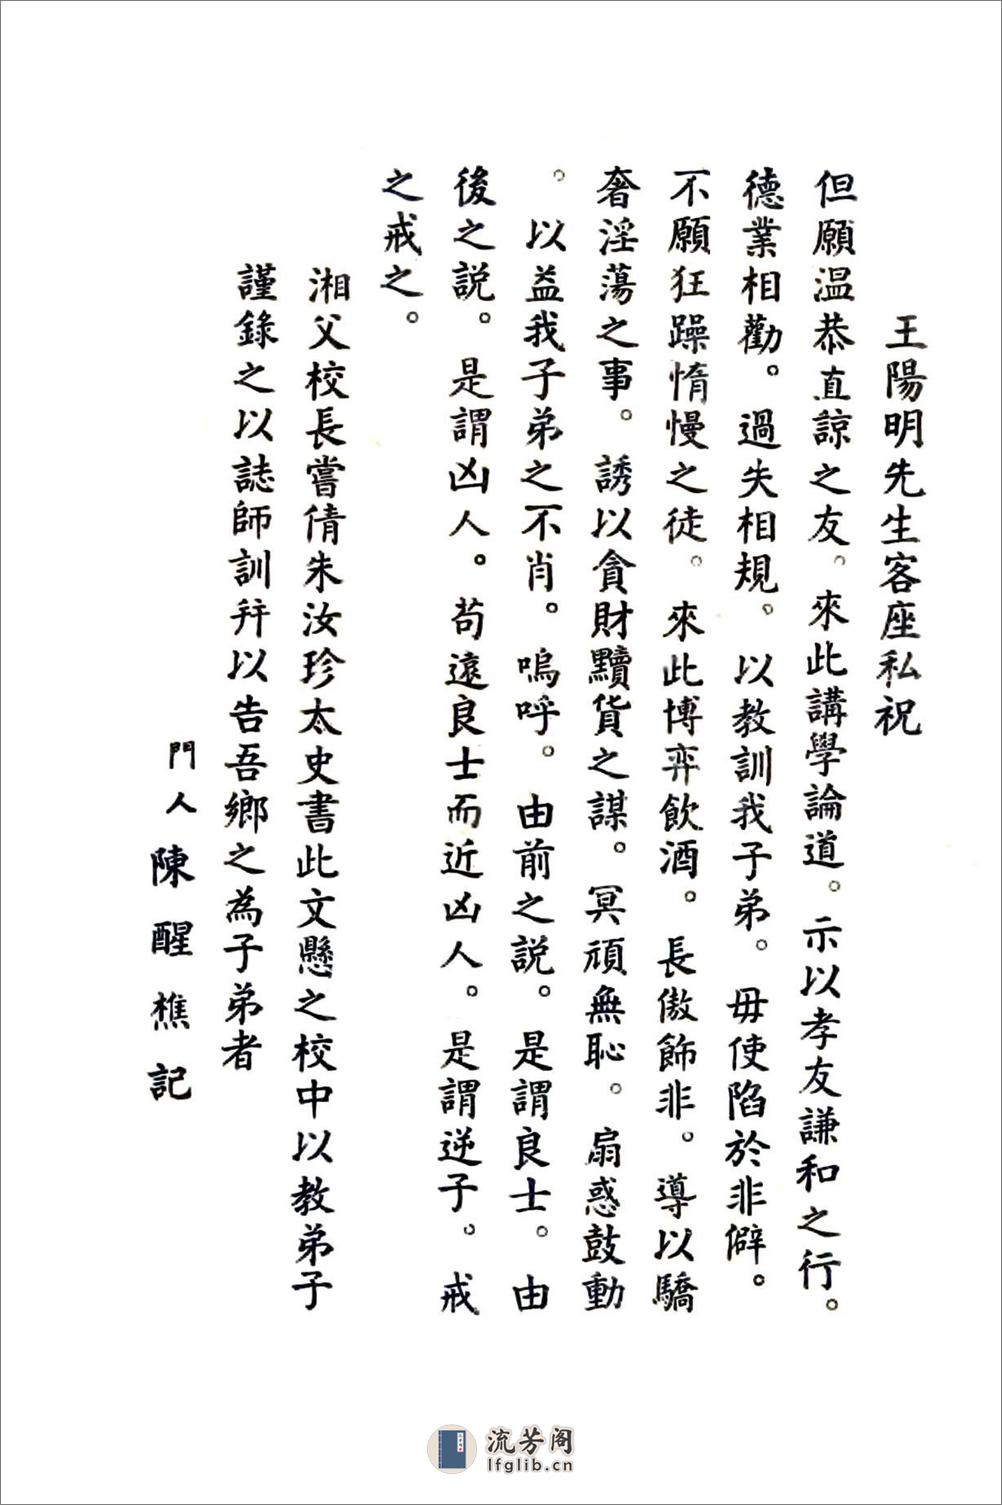 王陽明先生客座私祝
但願温恭直諒之友。來此講學論道。示以孝友謙和之行。
德業相勸。過失相規。以教訓我子弟。毋使陷於非僻。
不願狂躁惰慢之徒。來此博弈飲酒。長傲飾非。導以驕
奢淫蕩之事。誘以貪財黷貨之謀。冥頑無恥。扇惑鼓動
。以益我子弟之不肖。嗚呼。由前之説。是謂良士。由
後之説。是謂凶人。苟遠良士而近凶人。是謂逆子。戒
之戒之。
湘父校長嘗倩朱汝珍太史書此文懸之校中以教弟子
謹錄之以誌師訓幷以告吾鄉之為子弟者
門人陳醒樵記
流芳阁
lfglib.cn